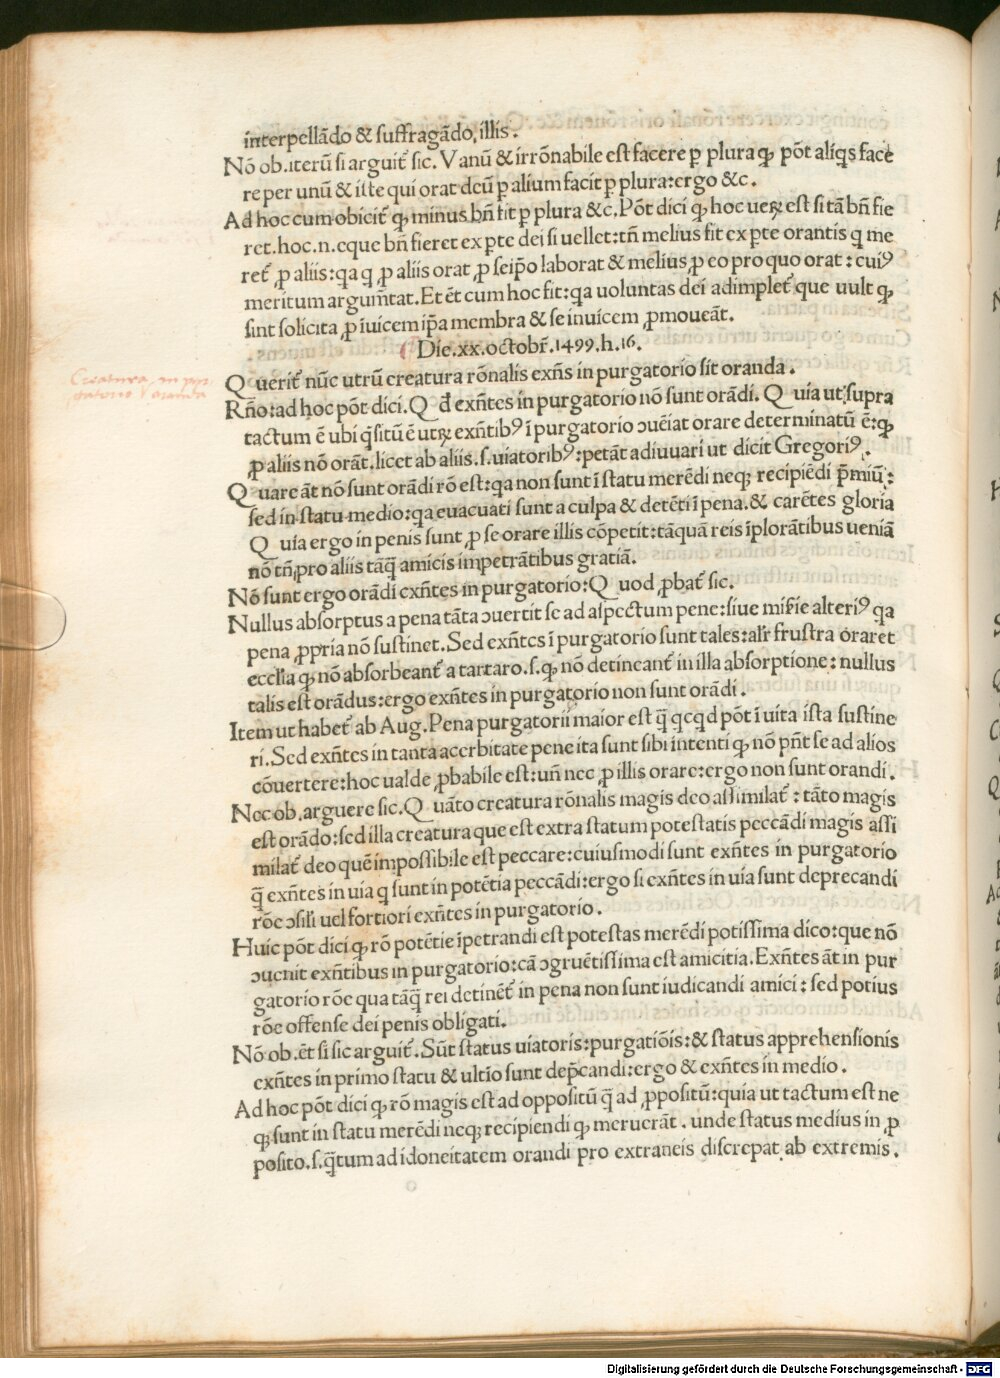 interpellãdo & suffragãdo, illis.
Nõ ob. iterũ si arguit᷑ sic. Vanũ & irrõnabile est facere ꝑ plura ꝙ põt aliqs face
re per unũ & iste qui orat dcũ ꝓ alium facit ꝑ plura: ergo &c.
Ad hoc cum obicit᷑ ꝙ minus bñ fit ꝑ plura &c. Põt dici ꝙ hoc ueꝝ est si tã bñ fie
ret. hoc .n. eque bñ fieret ex ꝑte dei si uellet: tñ melius fit ex ꝑte orantis q me
ret᷑ ꝓ aliis: qa q ꝓ aliis orat ꝓ seip̃o laborat & melius ꝓ eo pro quo orat: cuiꝰ
meritum argum̃tat. Et ẽt cum hoc fit: qa uoluntas dei adimplet᷑ que uult ꝙ
sint solicita ꝓ iuicem ip̃a membra & se inuicem ꝓmoueãt.
Die. xx. octobr̃. 1499. h. 16.
Creatura in pur
gatorio oranda
Q uerit᷑ nũc utrũ creatura rõnalis exñs in purgatorio sit oranda.
Rño: ad hoc põt dici. Q đ exñtes in purgatorio nõ sunt orãdi. Q uia ut supra
tactum ẽ ubi q̃situ ẽ utꝝ exñtibꝰ ĩ purgatorio ↄuẽiat orare determinatũ ẽ: ꝙ
ꝓ aliis nõ orãt. licet ab aliis .s. uiatoribꝰ: petãt adiuuari ut dicit Gregoriꝰ.
Q uare ãt nõ sunt orãdi rõ est: qa non sunt ĩ statu merẽdi neqꝫ recipiẽdi p̃miũ:
sed in statu medio: qa euacuati sunt a culpa & detẽti ĩ pena. & carẽtes gloria
Q uia ergo in penis sunt ꝓ se orare illis cõpetit: tãquã reis ĩplorãtibus ueniã
nõ tñ pro aliis tãq̃ amicis impetrãtibus gratiã.
Nõ sunt ergo orãdi exñtes in purgatorio: Q uod ꝓbat᷑ sic.
Nullus absorptus a pena tãta ↄuertit se ad aspectum pene: siue mis̃ie alteriꝰ qa
pena ꝓpria nõ sustinet. Sed exñtes ĩ purgatorio sunt tales: alr̃ frustra oraret
eccl̃ia ꝙ nõ absorbeant᷑ a tartaro .s. ꝙ nõ detineant᷑ in illa absorptione: nullus
talis est orãdus: ergo exñtes in purgatorio non sunt orãdi.
Item ut habet᷑ ab Aug. Pena purgatorii maior est q̃ qcqd põt ĩ uita ista sustine
ri. Sed exñtes in tanta acerbitate pene ita sunt sibi intenti ꝙ nõ pñt se ad alios
cõuertere: hoc ualde ꝓbabile est: uñ nec ꝓ illis orare: ergo non sunt orandi.
Nec ob. arguere sic. Q uãto creatura rõnalis magis deo assimilat᷑: tãto magis
est orãdo: sed illa creatura que est extra statum potestatis peccãdi magis assi
milat᷑ deo quẽ impossibile est peccare: cuiusmodi sunt exñtes in purgatorio
q̃ exñtes in uia q sunt in potẽtia peccãdi: ergo si exñtes in uia sunt deprecandi
rõe ↄsili uel fortiori exñtes in purgatorio.
Huic põt dici ꝙ rõ potẽtie ĩpetrandi est potestas merẽdi potissima dico: que nõ
ↄuenit exñtibus in purgatorio: cã ↄgruẽtissima est amicitia. Exñtes ãt in pur
gatorio rõe qua tãq̃ rei detinẽt᷑ in pena non sunt iudicandi amici: sed potius
rõe offense dei penis obligati.
Nõ ob. ẽt si sic arguit᷑. Sũt status uiatoris: purgatiõis: & status apprehensionis
exñtes in primo statu & ultio sunt dep̃candi: ergo & exñtes in medio.
Ad hoc põt dici ꝙ rõ magis est ad oppositũ q̃ ad ꝓpositũ: quia ut tactum est ne
qꝫ sunt in statu merẽdi neqꝫ recipiendi ꝙ meruerãt. unde status medius in ꝓ
posito .s. q̃tum ad idoneitatem orandi pro extraneis discrepat ab extremis.
Digitalisierung gefördert durch die Deutsche Forschungsgemeinschaft - DFG